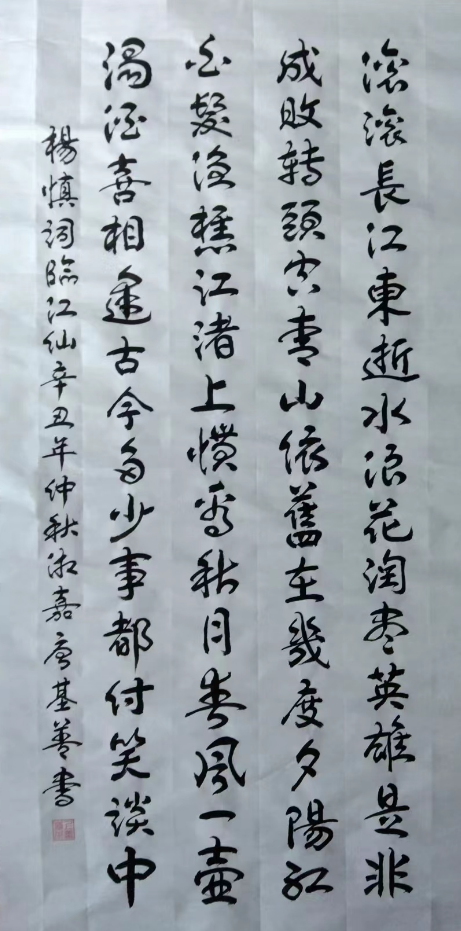 滚滚長江東逝水浪花淘尽英雄是非
成敗转頭空青山依舊在幾度夕陽红
白髮渔樵江渚上惯看秋月春风一壶
濁酒喜相逢古今多少事都付笑談中
楊慎词臨江仙辛丑年仲秋淑嘉唐基善書